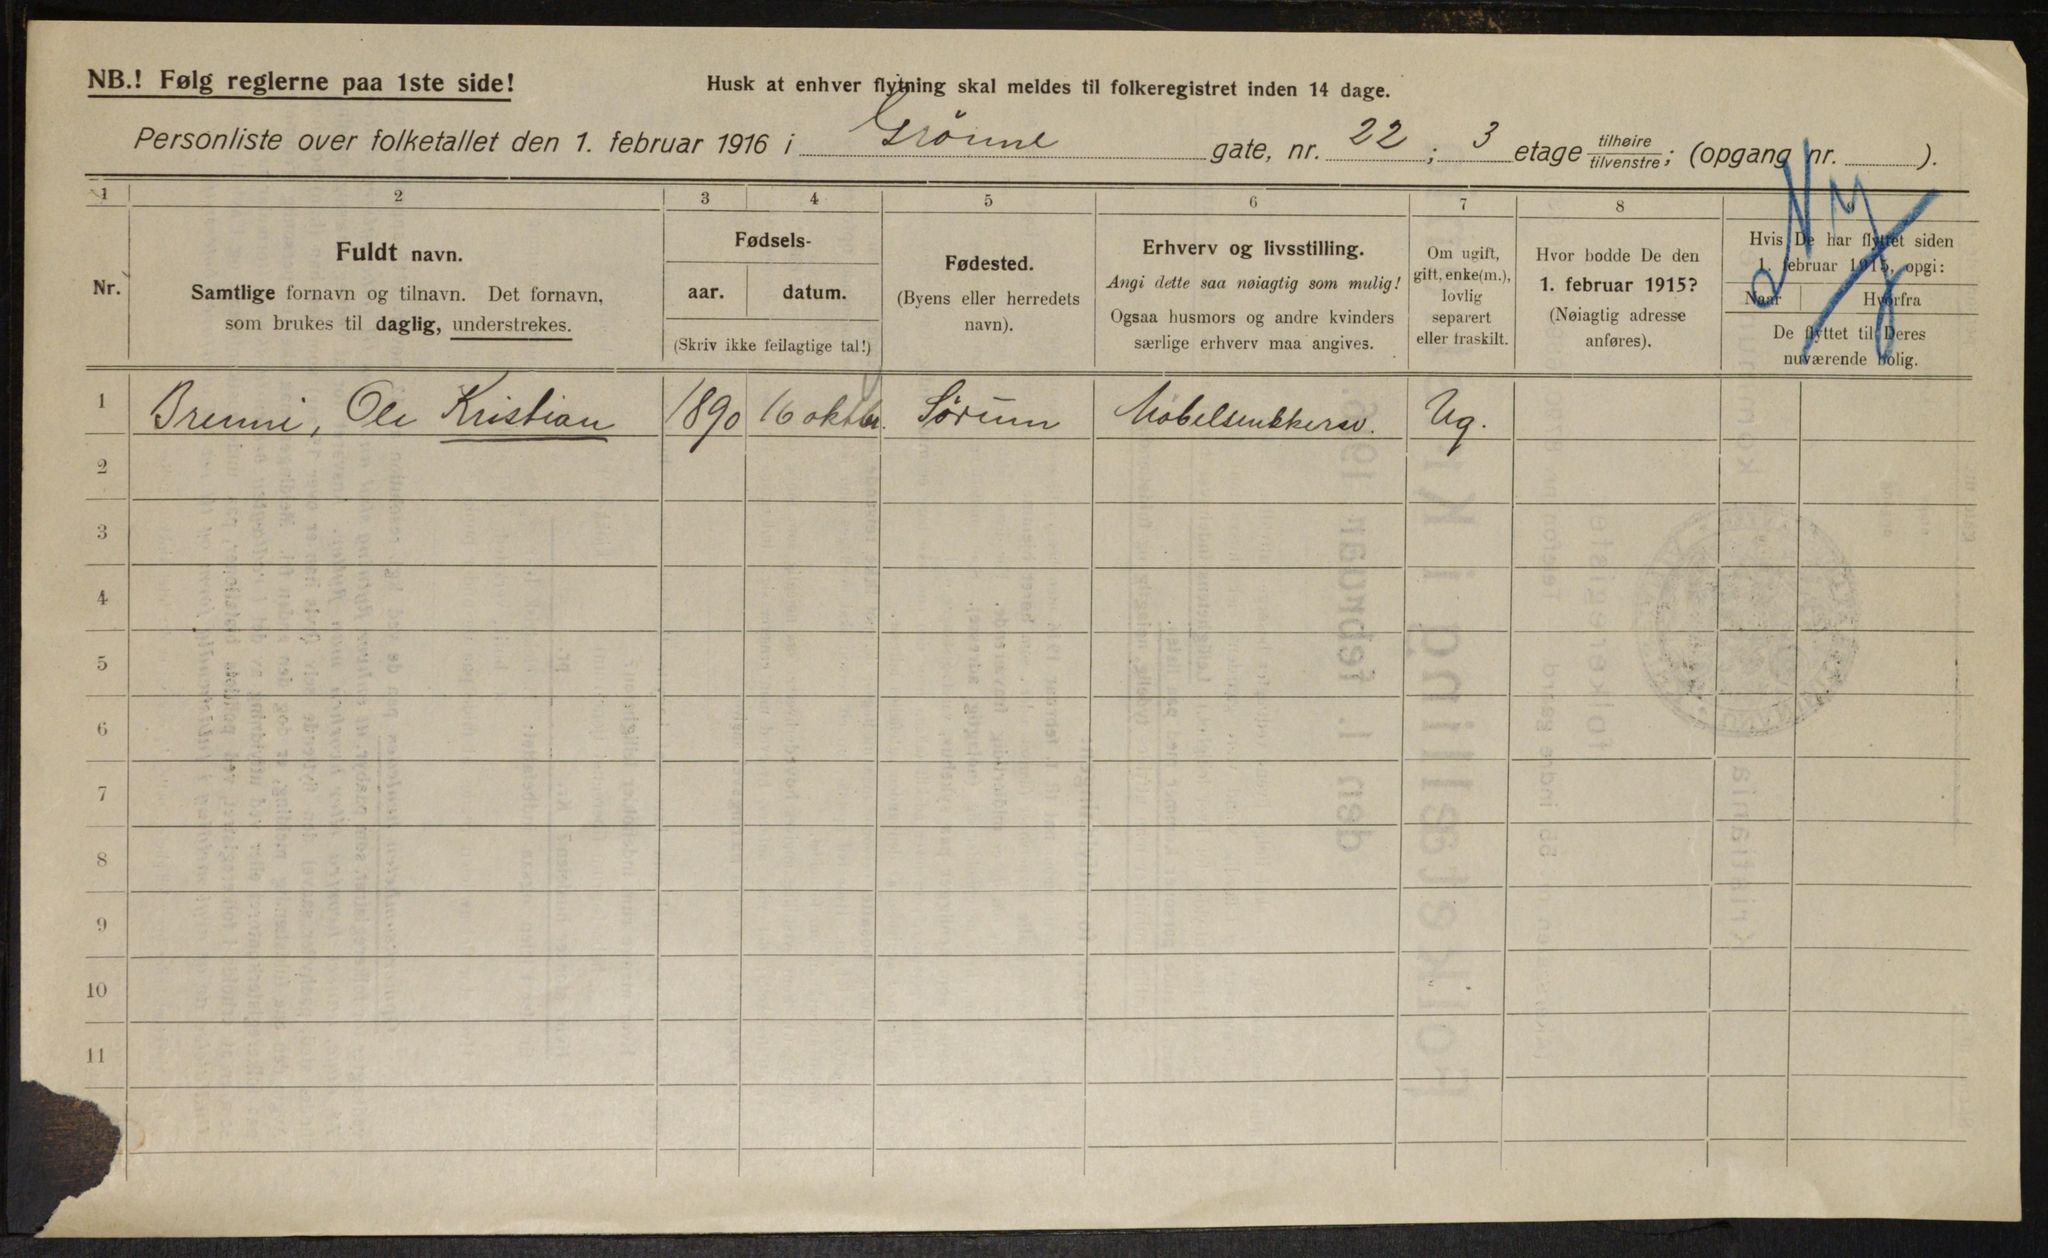 NB.! Følg reglerne paa 1ste side!
Husk at enhver flytning skal meldes til folkeregistret inden 14 dage.
Personliste over folketallet den 1. februar 1916 i Grønne gate, nr. 22; 3 etage tilhøire/tilvenstre; (opgang nr. ).
Ny
1 2 3 4 5 6 7 8 9
Nr.
Fuldt navn.
Samtlige fornavn og tilnavn. Det fornavn,
som brukes til daglig, understrekes.
Fødsels-
aar. datum.
(Skriv ikke feilagtige tal!)
Fødested.
(Byens eller herredets
navn).
Erhverv og livsstilling.
Angi dette saa nøiagtig som mulig!
Ogsaa husmors og andre kvinders
særlige erhverv maa angives.
Om ugift,
gift, enke(m.),
lovlig
separert
eller fraskilt.
Hvor bodde De den
1. februar 1915?
(Nøiagtig adresse
anføres).
Hvis De har flyttet siden
1. februar 1915, opgi:
Naar Hvorfra
De flyttet til Deres
nuværende bolig.
1 Brenni, Ole Kristian 1890 16 oktbr. Sørum Møbelsnekkersv. Ug.
2
3
4
5
6
7
8
9
10
11